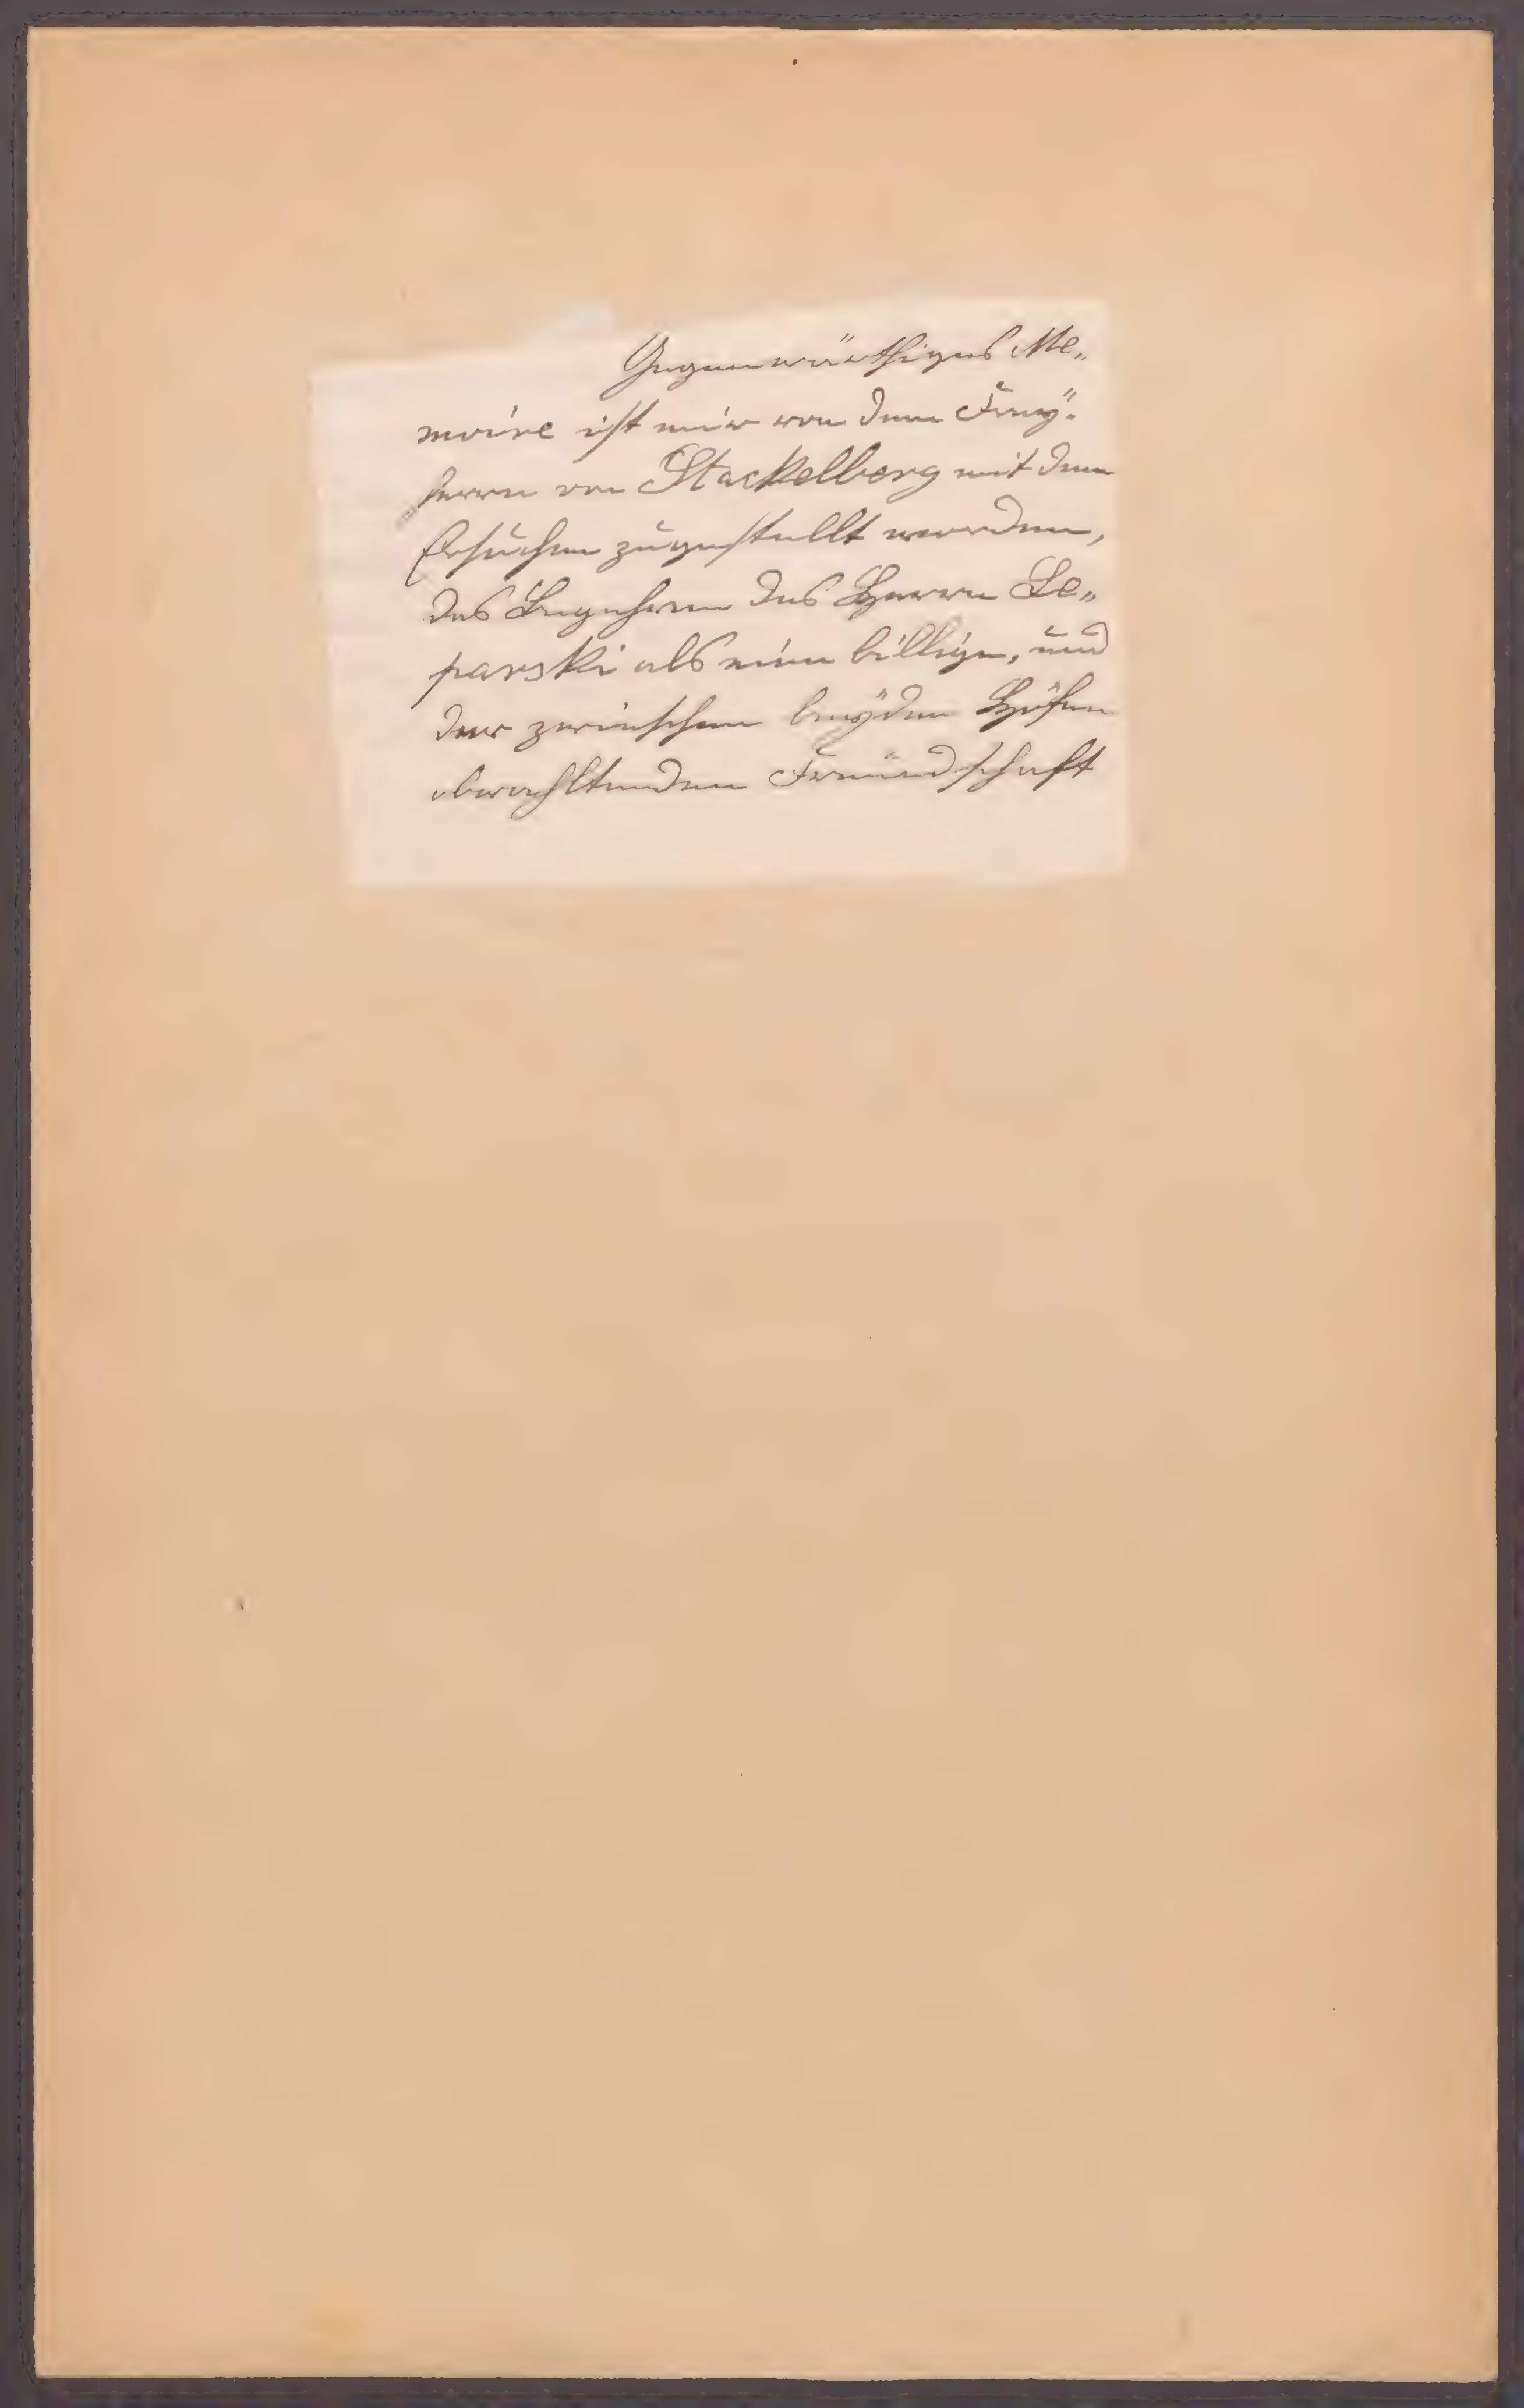 Gegenwärthiges Me„
moire ist mir von dem Freÿ„
herrn von Stackelberg mit dem
Ersuchen zugestellt worden,
das Begehren des Herrn Le„
parski als eine billige, und
der zwieschen beÿden Höfen
obwahltenden Freundschaft